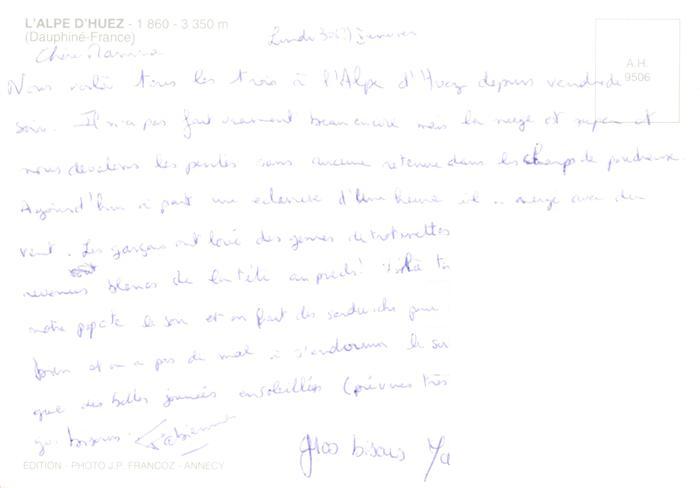 L'ALPE D'HUEZ - 1 860 - 3 350 m
(Dauphiné-France)
A.H.
9506
Lundi janvier
Chère Mamina
Nous voilà tous les trois à l'Alpe d'Huez depuis vendredi
soir. Il n'a pas fait vraiment beau encore mais la neige est super et
nous dévalons les pentes sans aucune retenue dans les champs de poudreuse.
Aujourd'hui à part une éclaircie d'une heure il a neigé avec du
vent. Les garçons ont loué des genres de trotinettes
revenus blancs de la tête au pieds! Voilà
notre popote le soir et on fait des sandwichs pour
bien et on a pas de mal à s'endormir le
que des belles journées ensoleillées (prévues très
bisous. à bientôt
gros bisous
EDITION - PHOTO J.P. FRANCOZ - ANNECY